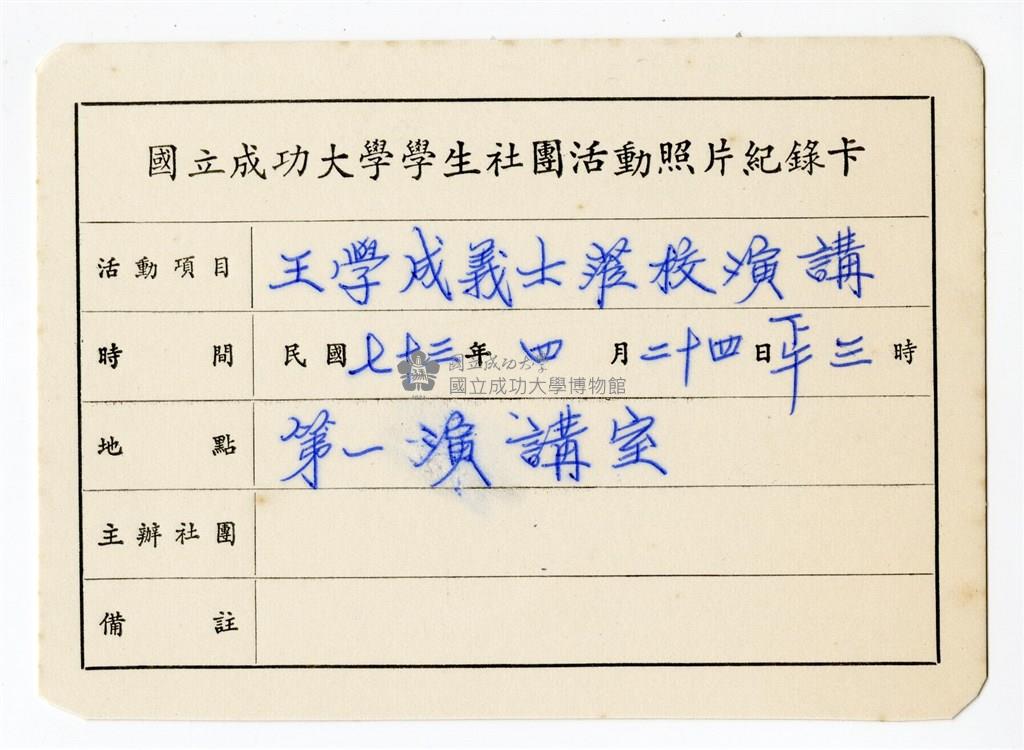 國立成功大學學生社團活動照片紀錄卡
活動項目 王學成義士蒞校演講
時間 民國七十三年四月二十四日下午三時
國立成功大學
國立成功大學博物館
地點 第一演講室
主辦社團
備註